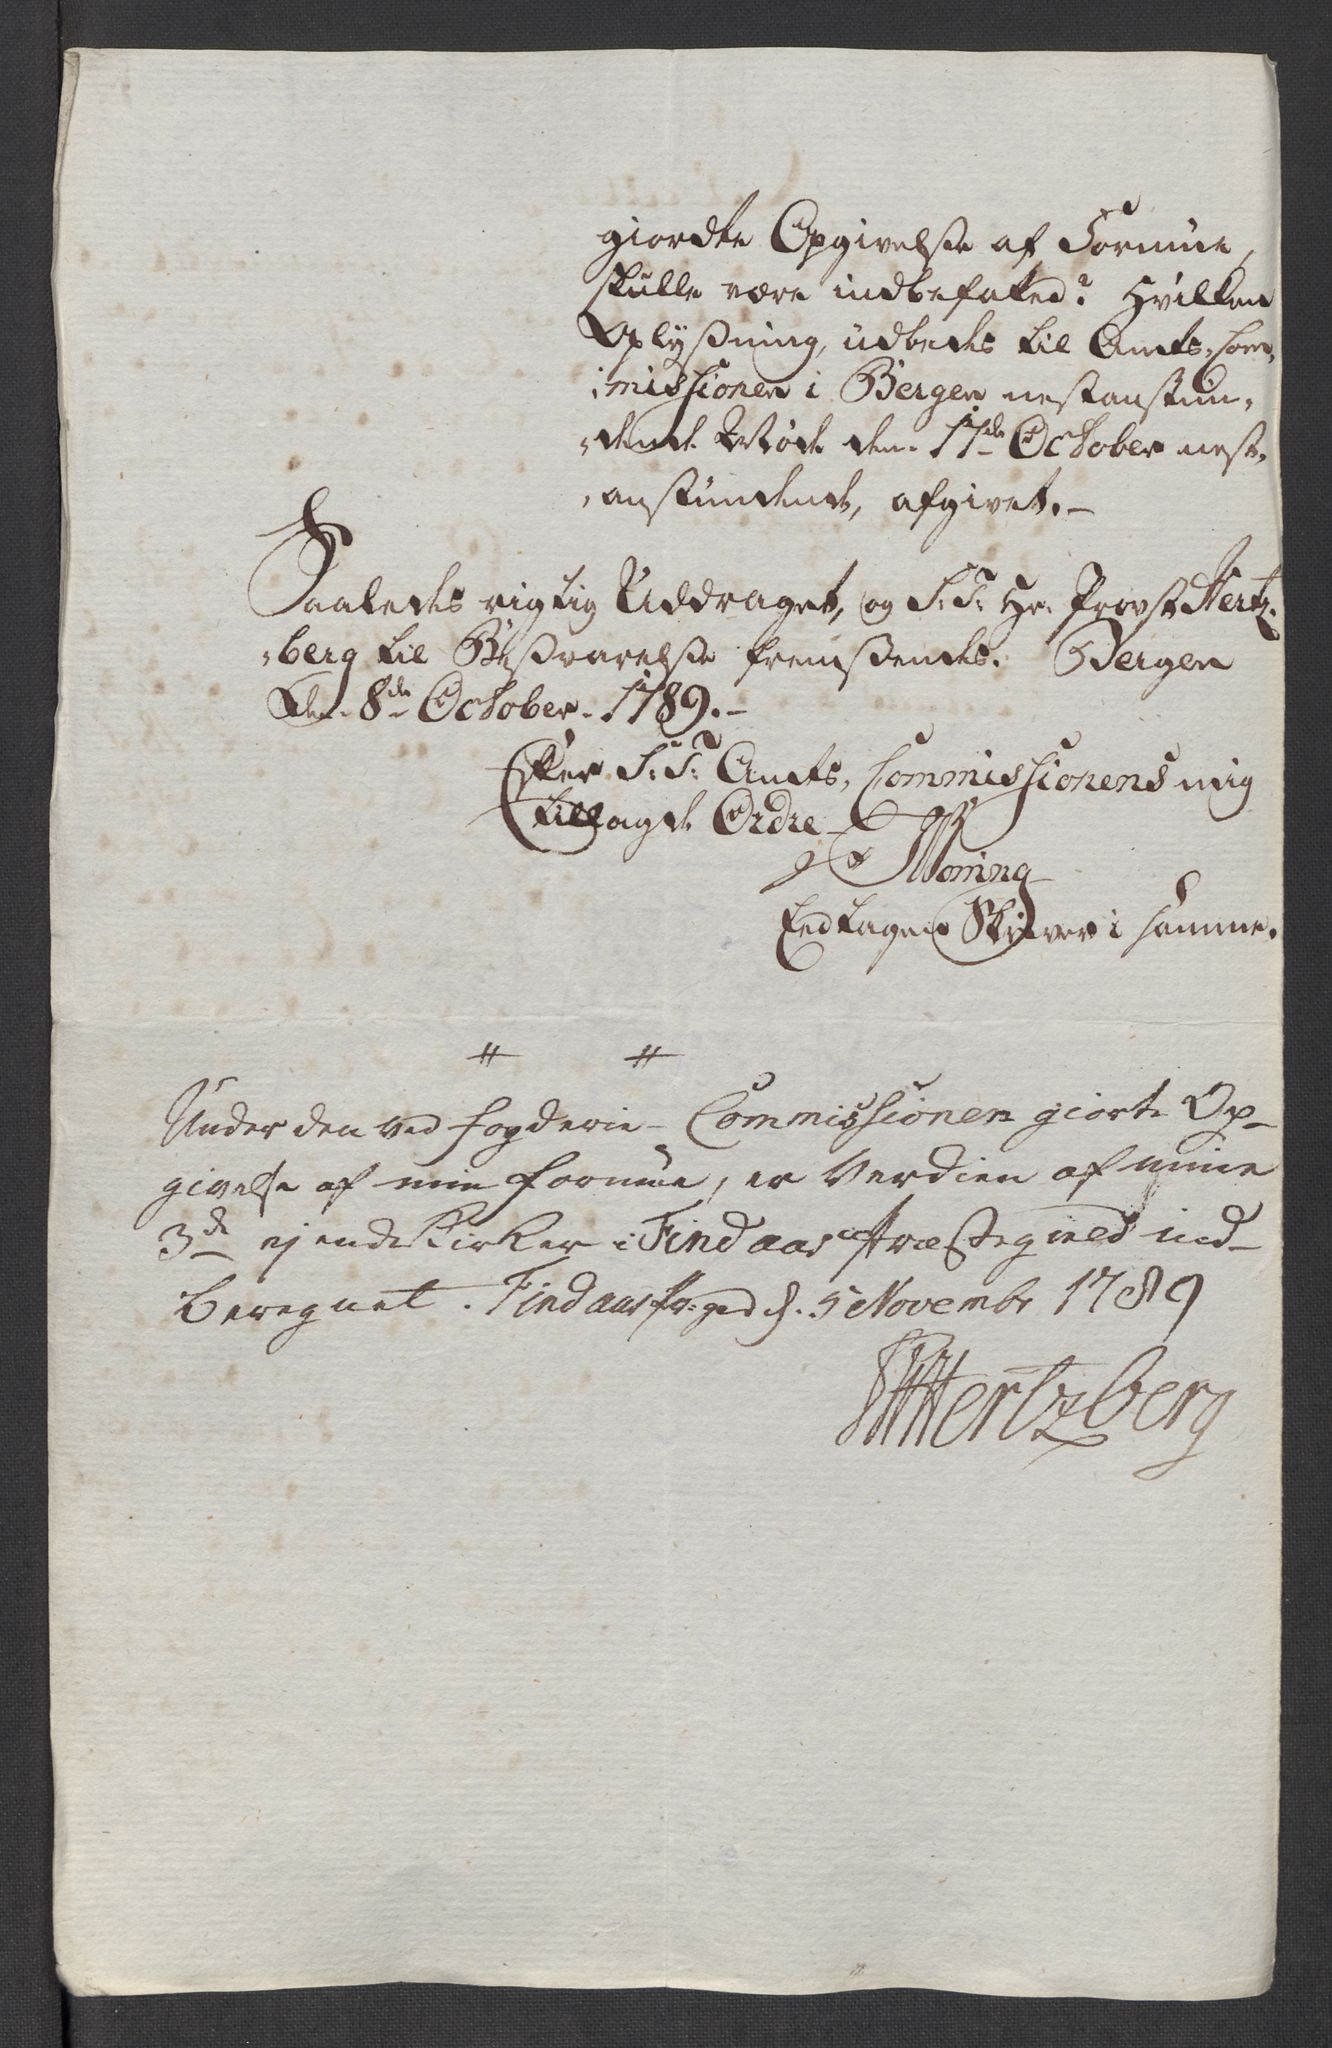 giordte Opgivelse af Formue,
skulle være indbefatted? Hvilken
Oplysning, udbedes til Amts-Com-
missionen i Bergen nestanstun-
dende Møde den 17de October nest-
anstundende, afgivet.-
Saaledes rigtig Uddraget, og S: T: Hr. Provst Hertz-
berg til Besvarelse fremsendes. Bergen
Den 8de October 1789.-
Efter S: T: Amts-Commissionens mig
tillagde Ordre
Moning
Eedtagen Skriver i samme.
# #
Under den ved Fogderie-Commissionen giorte Op-
givelse af min Formue, er Verdien af mine
3de ejende Kirker i Findaas Præstegield ind-
beregnet. Findaas Pr: gd d. 5 Novembr 1789
Hertzberg